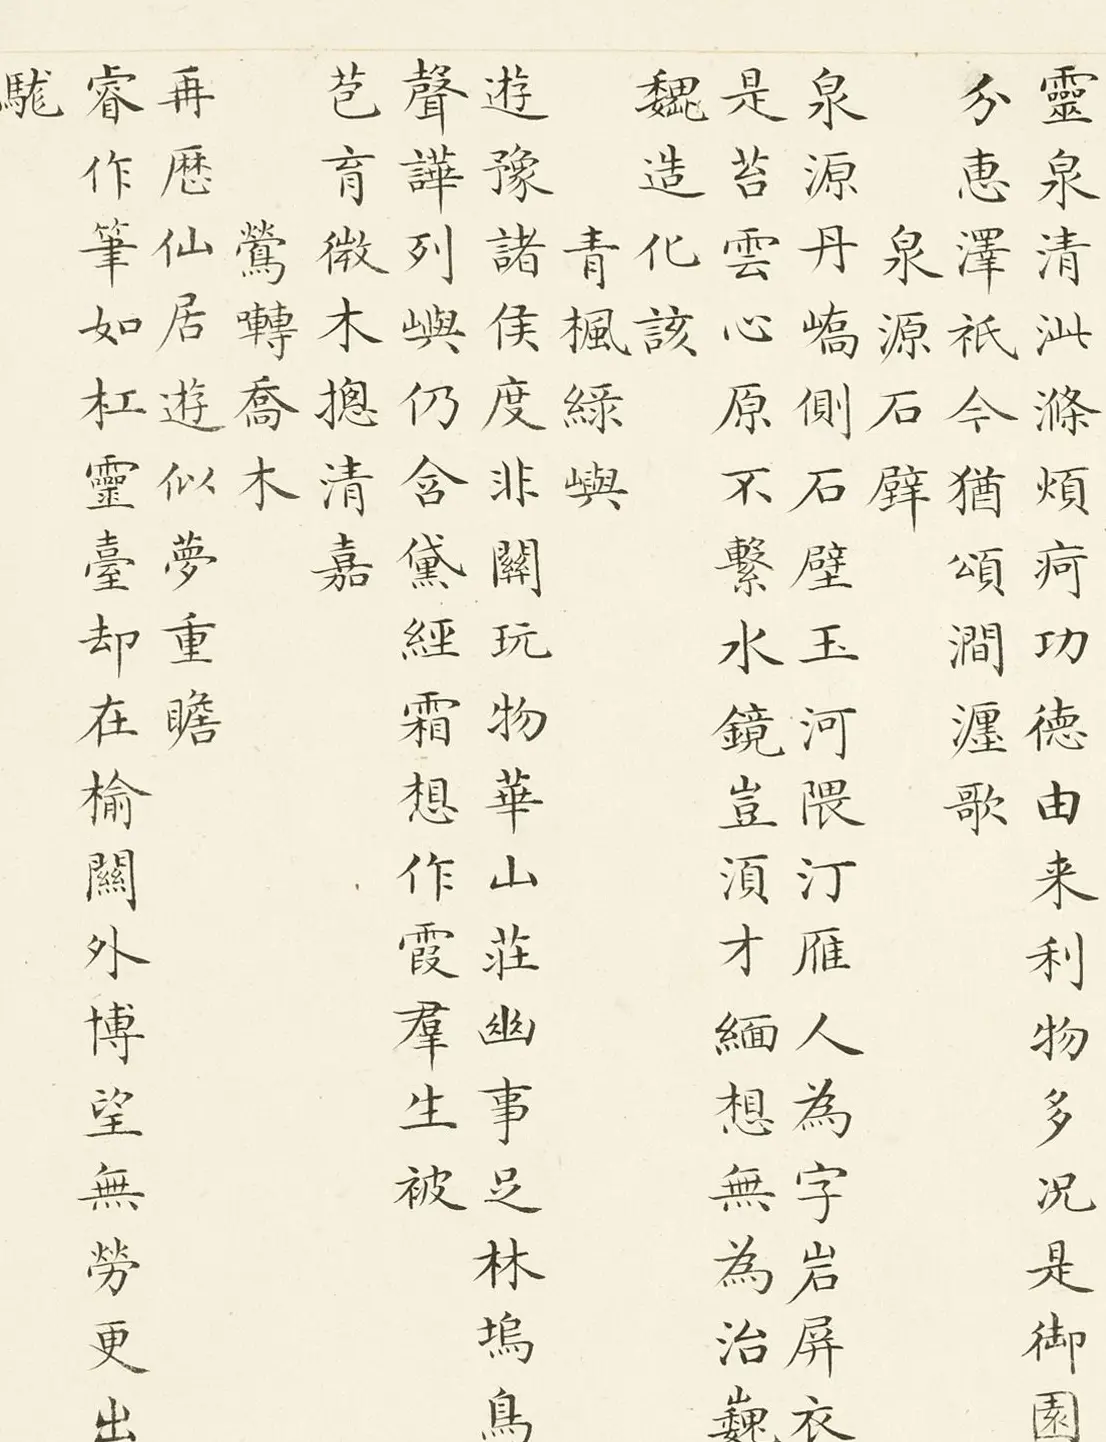 靈泉清泚滌煩疴功德由来利物多况是御園
分惠澤祇今猶頌澗瀍歌
泉源石壁
泉源丹嶠側石壁玉河隈汀雁人為字岩屏衣
是苔雲心原不繫水鏡豈湏才緬想無為治巍
巍造化該
青楓緑嶼
遊豫諸侯度非關玩物華山莊幽事足林塢鳥
聲譁列嶼仍含黛經霜想作霞羣生被
苞育微木摠清嘉
鶯囀喬木
再歷仙居遊似夢重瞻
睿作筆如杠靈臺却在榆關外博望無勞更出
駹